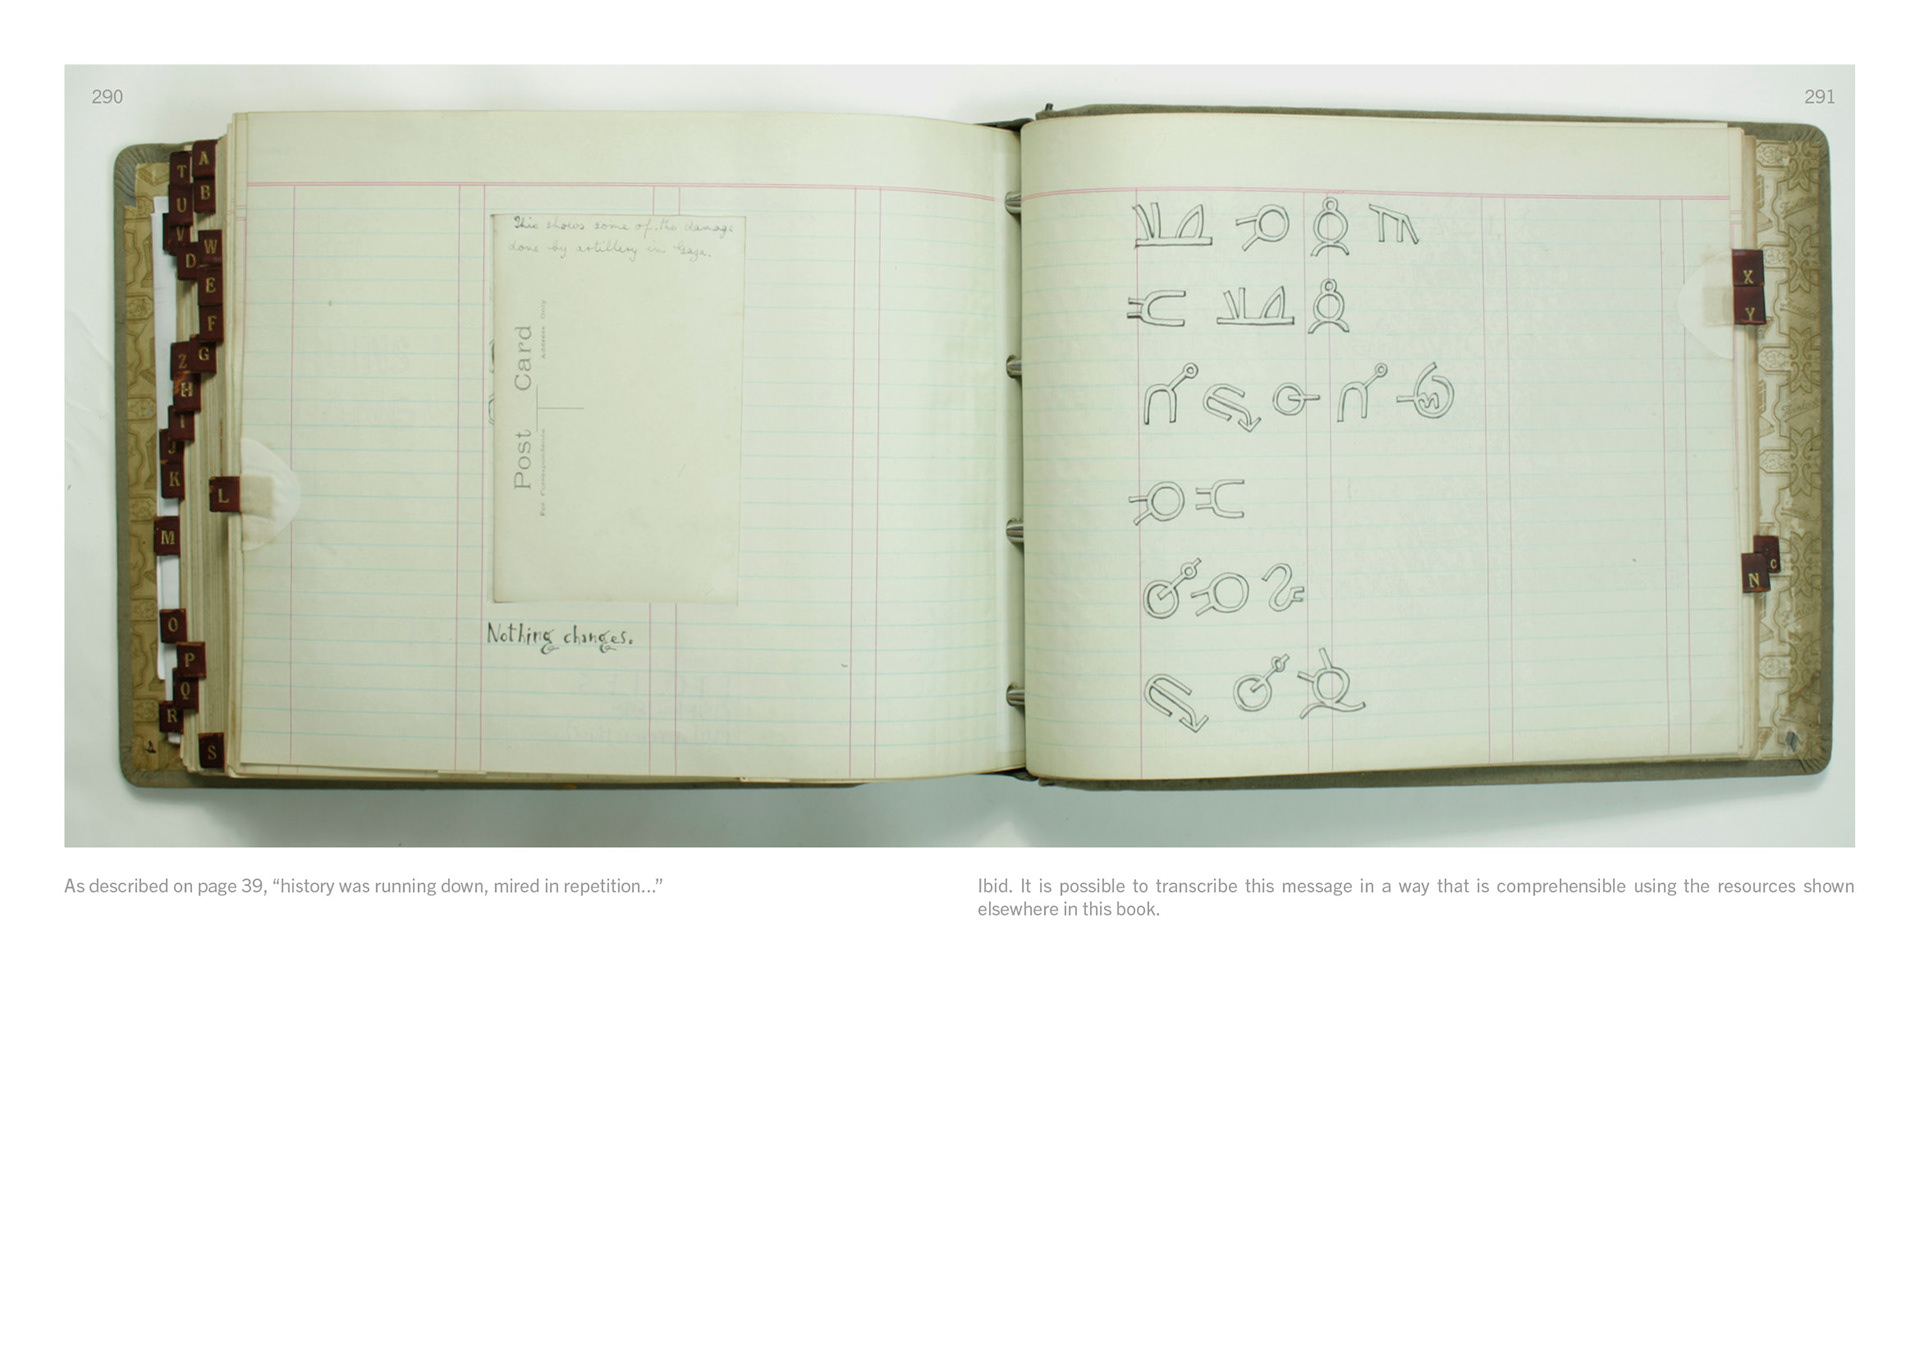 290
291
This shows some of the damage
done by artillery in Gaza.
Post Card
For Correspondence
Address Only
Nothing changes.
T
A
U
B
V
W
D
E
F
Z
G
H
I
J
K
L
M
O
P
Q
R
S
X
Y
C
N
As described on page 39, “history was running down, mired in repetition...”
Ibid. It is possible to transcribe this message in a way that is comprehensible using the resources shown
elsewhere in this book.